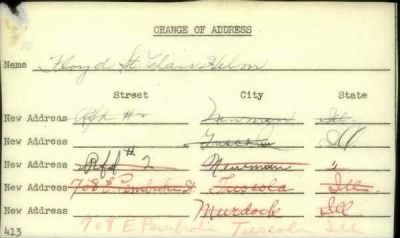 CHANGE OF ADDRESS
Name Floyd St Clair Helm
Street City State
New Address Rfd #2 Newman Ill.
New Address Tuscola Ill
New Address Rfd #2 Newman "
New Address 708 E. Pembroke St Tuscola Ill.
New Address Murdock Ill
New Address 708 E Pembroke Tuscola Ill
413